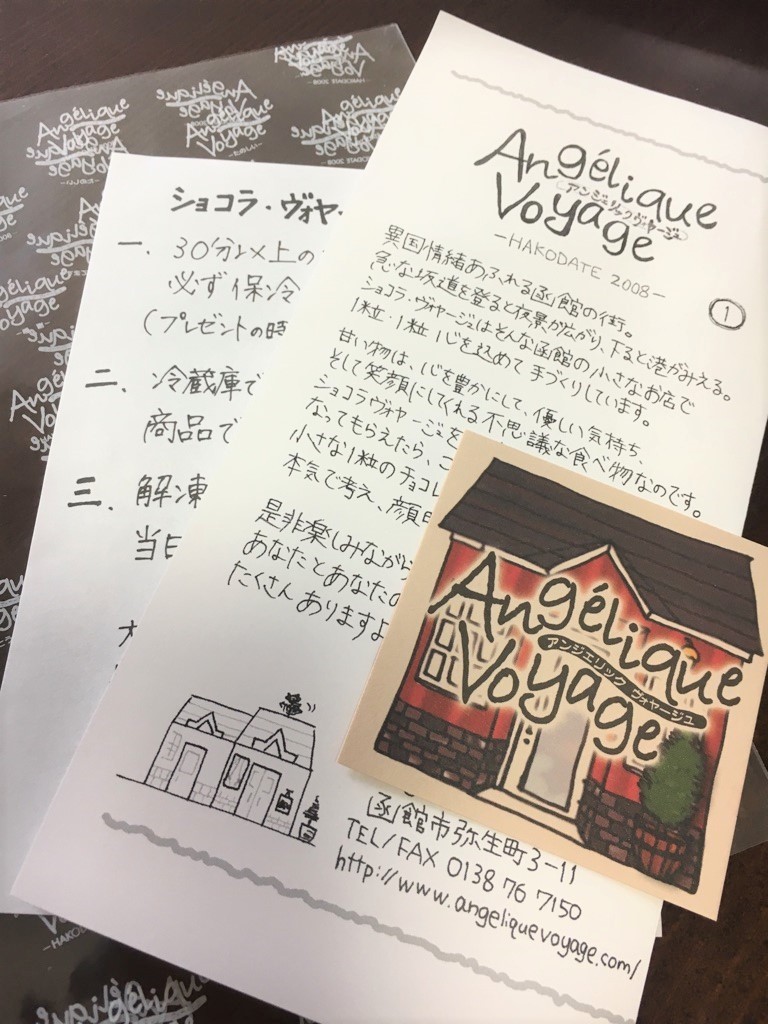 Angélique
Voyage
アンジェリックヴォヤージュ
-HAKODATE 2008-
①
異国情緒あふれる函館の街。
急な坂道を登ると夜景が広がり、下ると港がみえる。
ショコラ・ヴォヤージュはそんな函館の小さなお店で
1粒・1粒 心を込めて 手づくりしています。
甘い物は、心を豊かにして、優しい気持ち、
そして笑顔にしてくれる不思議な食べ物なのです。
ショコラヴォヤージュを
なってもらえたら、こ
小さな1粒のチョコレ
本気で考え、顔
是非楽しみながら
あなたとあなたの
たくさんありますよ
函館市弥生町3-11
TEL/FAX 0138 76 7150
http://www.angeliquevoyage.com/
ショコラ・ヴォヤ・
一、30分以上の
必ず保冷
(プレゼントの時
二、冷蔵庫で
商品で
三、解凍
当日
Angélique
アンジェリック ヴォヤージュ
Voyage
Angélique
Voyage
-HAKODATE 2008-